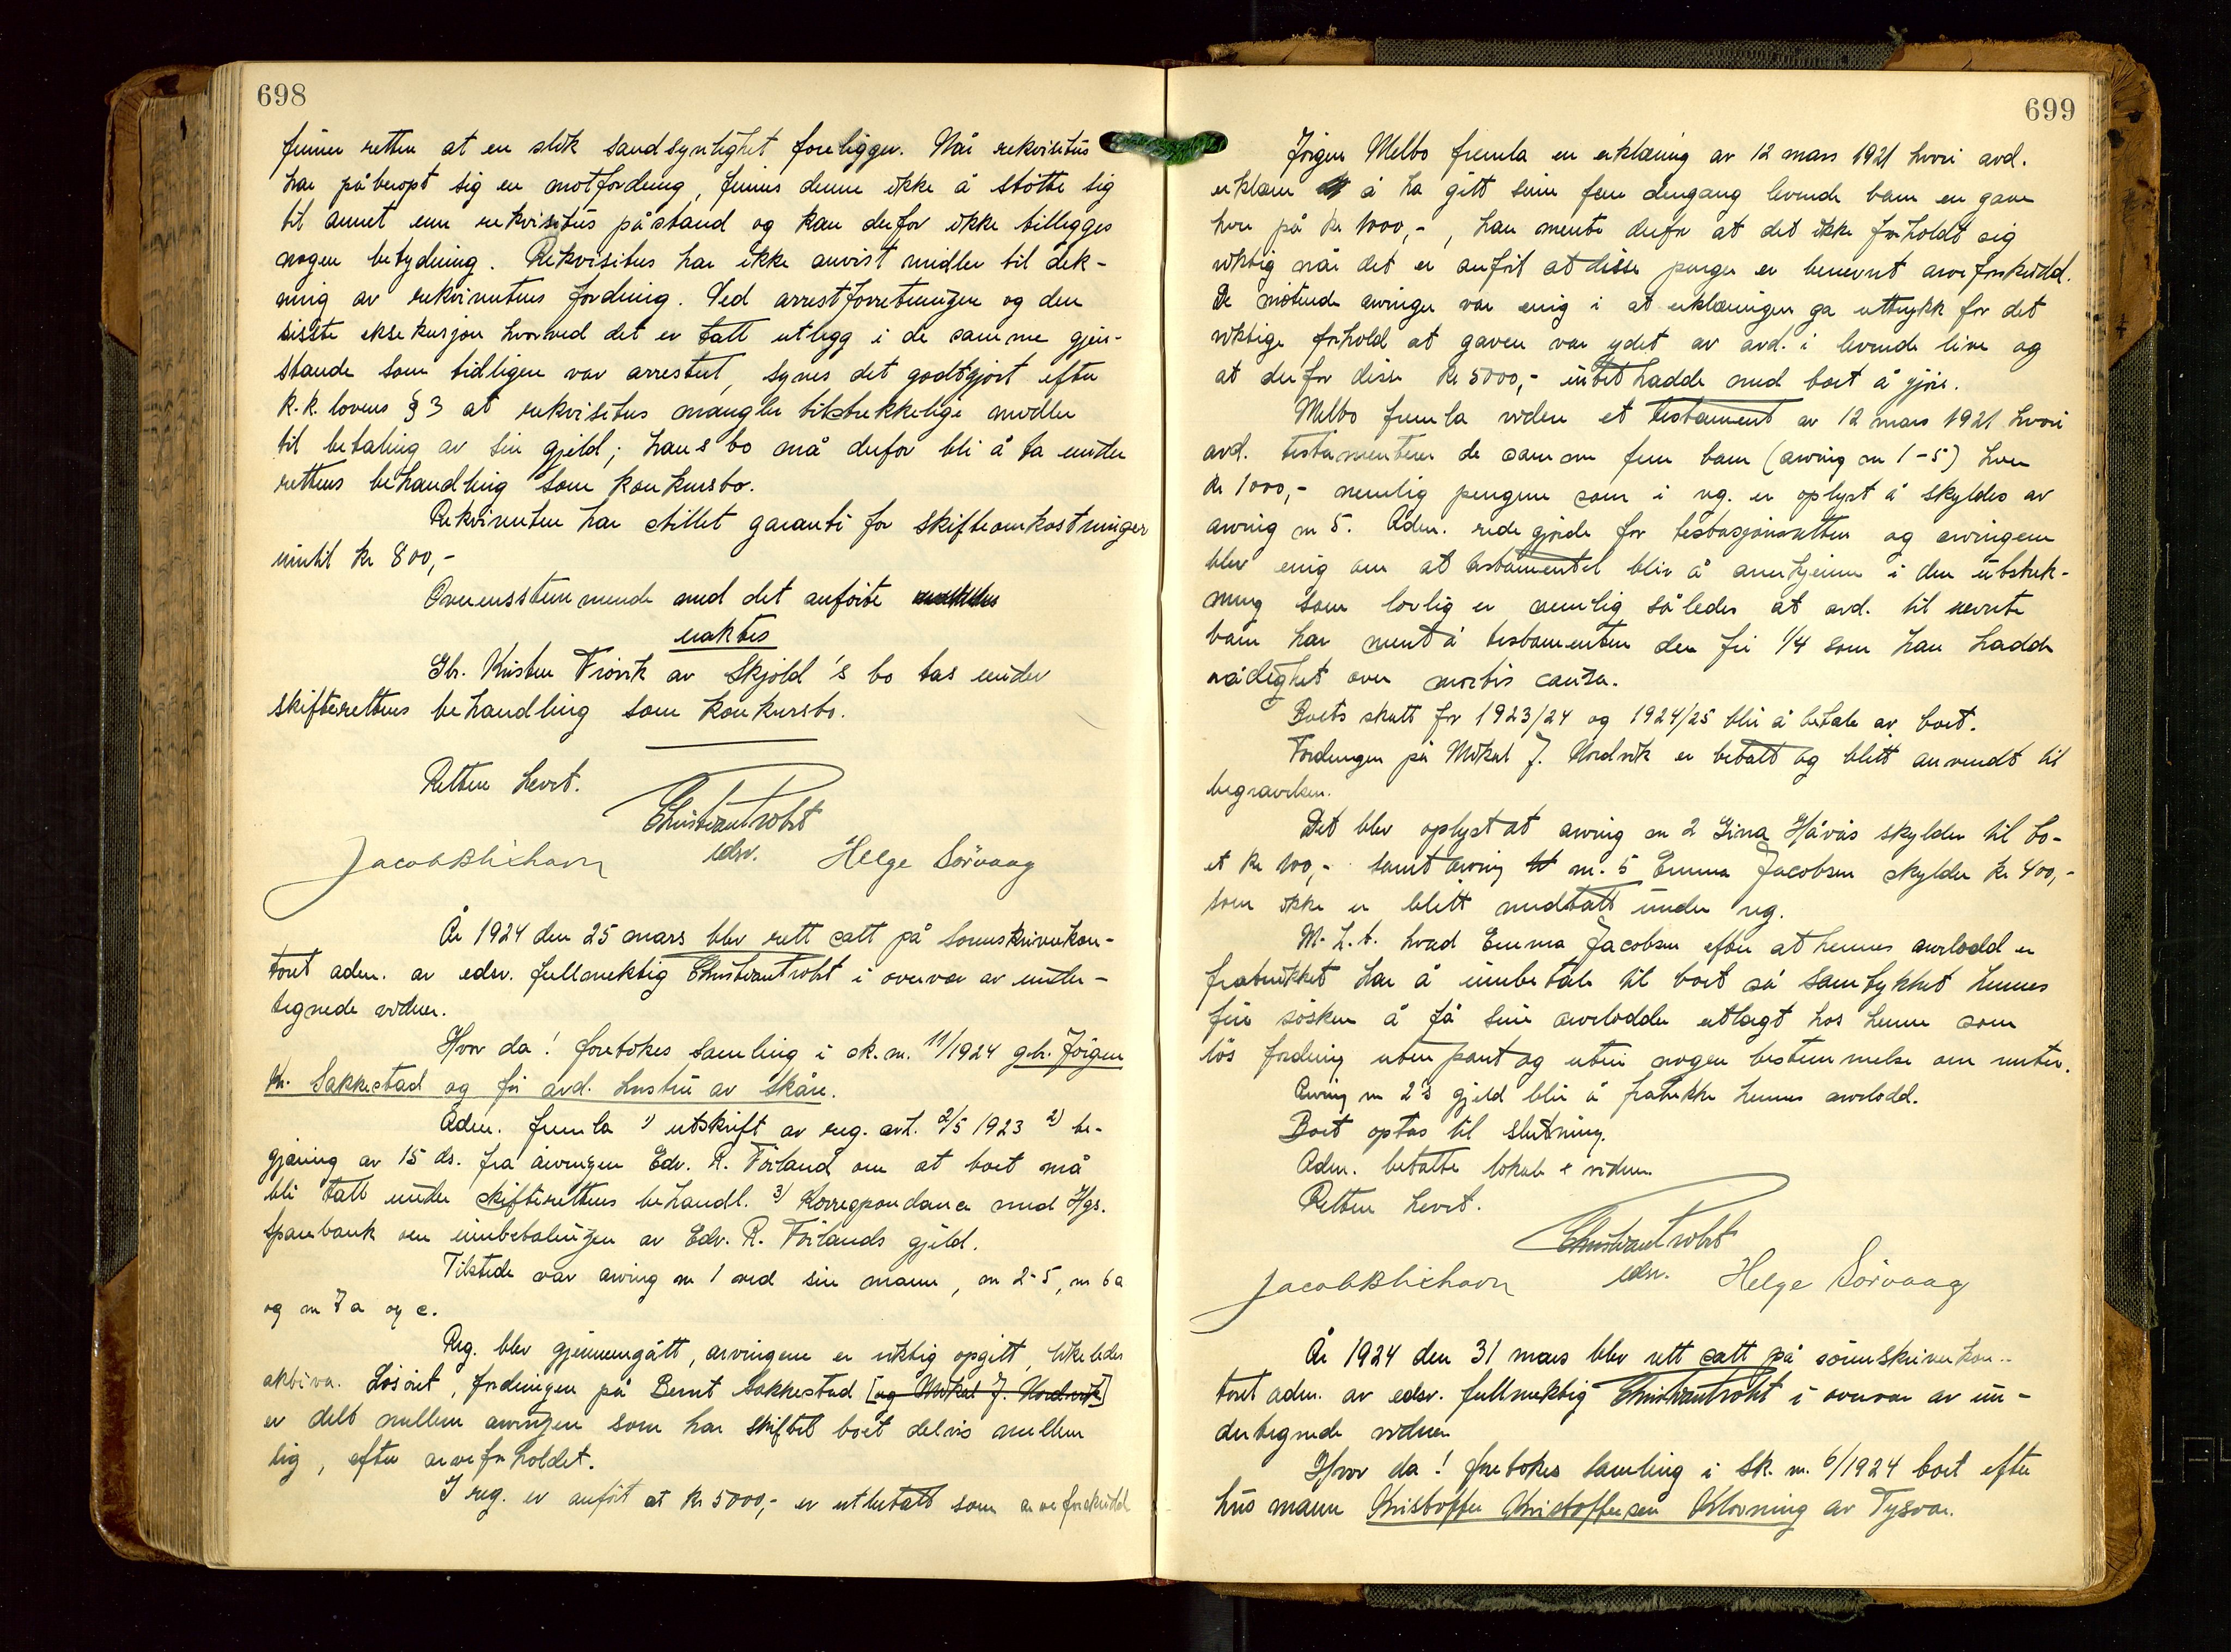 698
finner retten at en slik sandsynlighet foreligger. Når rekvisitus
har påberopt sig en motfordring, finnes denne ikke å støtte sig
til annet enn rekvisitus påstand og kan derfor ikke tillegges
nogen betydning. Rekvisitus har ikke anvist midler til dek-
ning av rekvirentens fordring. Ved arrestforretningen og den
siste eksekusjon hvorved det er tatt utlegg i de samme gjen-
stande som tidligere var arrestert, synes det godtgjort efter
k.k. lovens § 3 at rekvisitus mangler tilstrekkelige midler
til betaling av sin gjeld; hans bo må derfor bli å ta under
rettens behandling som konkursbo.
Rekvirenten har stillet garanti for skifteomkostninger
inntil kr 800,-
Overensstemmende med det anførte
eraktes
Gbr. Kristen Frövik av Skjold's bo tas under
skifterettens behandling som konkursbo.
Retten hevet.
Christian Trobst
edsv.
Jacob Blikhavn Helge Sörvaag
År 1924 den 25 mars blev rett satt på sorenskriverkon-
toret adm. av edsv. fullmektig Christian Trobst i overvær av under-
tegnede vidner.
Hvor da! foretokes samling i sk. nr. 11/1924 gbr. Jörgen
Kr. Sakkestad og før avd. hustru av Skåre.
Adm. fremla 1) utskrift av reg. avh. 2/5 1923 2) be-
gjæring av 15 ds. fra arvingen Edv. R. Förland om at boet må
bli tatt under skifterettens behandl. 3) Korrespondance med Hgs.
Sparebank om innbetalingen av Edv. R. Förlands gjeld.
Tilstede var arving nr 1 ved sin mann, nr 2-5, nr 6a
og nr 7a og c.
Reg. blev gjennemgått, arvingene er riktig opgitt, likeledes
aktiva. Løsøret, fordringen på Bernt Sakkestad [og Mikal J. Nordvik]
er delt mellem arvingene som har skiftet boet delvis mellem
sig, efter arveforholdet.
I reg. er anført at kr 5000,- er utbetalt som arveforskudd
699
Jörgen Melbo fremla en erklæring av 12 mars 1921 hvori avd.
erklærer å ha gitt sine fem dengang levende barn en gave
hver på kr 1000,-, han mente derfor at det ikke forholdt sig
riktig når det er anført at disse penger er benevnt arveforskudd.
De møtende arvinger var enig i at erklæringen ga uttrykk for det
riktige forhold at gaven var ydet av avd. i levende live og
at derfor disse kr 5000,- intet hadde med boet å gjøre.
Melbo fremla videre et testament av 12 mars 1921 hvori
avd. testamenterer de samme fem barn (arving nr 1-5) hver
kr 1000,- nemlig pengene som i reg. er oplyst å skyldes av
arving nr 5. Adm. redegjorde for testasjonsretten og arvingene
blev enig om at testamentet blir å anerkjenne i den utstrek-
ning som lovlig er nemlig således at avd. til nevnte
barn har ment å testamentere den fri 1/4 som han hadde
rådighet over mortis causa.
Boets skatt for 1923/24 og 1924/25 blir å betale av boet.
Fordringen på Mikal J. Nordvik er betalt og blitt anvendt til
begravelsen.
Det blev oplyst at arving nr 2 Gina Håvås skylder til bo-
et kr 100,- samt arving nr. 5 Emma Jacobsen skylder kr 400,-
som ikke er blitt medtatt under reg.
M. h. t. hvad Emma Jacobsen efter at hennes arvelodd er
fratrukket har å innbetale til boet så samtykket hennes
fire søsken å få sine arvelodder utlagt hos henne som
løs fordring uten pant og uten nogen bestemmelse om renter.
Arving nr 2's gjeld blir å fratrekke hennes arvelodd.
Boet optas til slutning.
Adm. betalte lokale & vidner.
Retten hevet.
Christian Trobst
edsv.
Jacob Blikhavn Helge Sörvaag
År 1924 den 31 mars blev rett satt på sorenskriverkon-
toret adm. av edsv. fullmektig Christian Trobst i overvær av un-
dertegnede vidner
Hvor da! foretokes samling i Sk. nr. 6/1924 boet efter
husmann Kristoffer Kristoffersen Klovning av Tysvær.